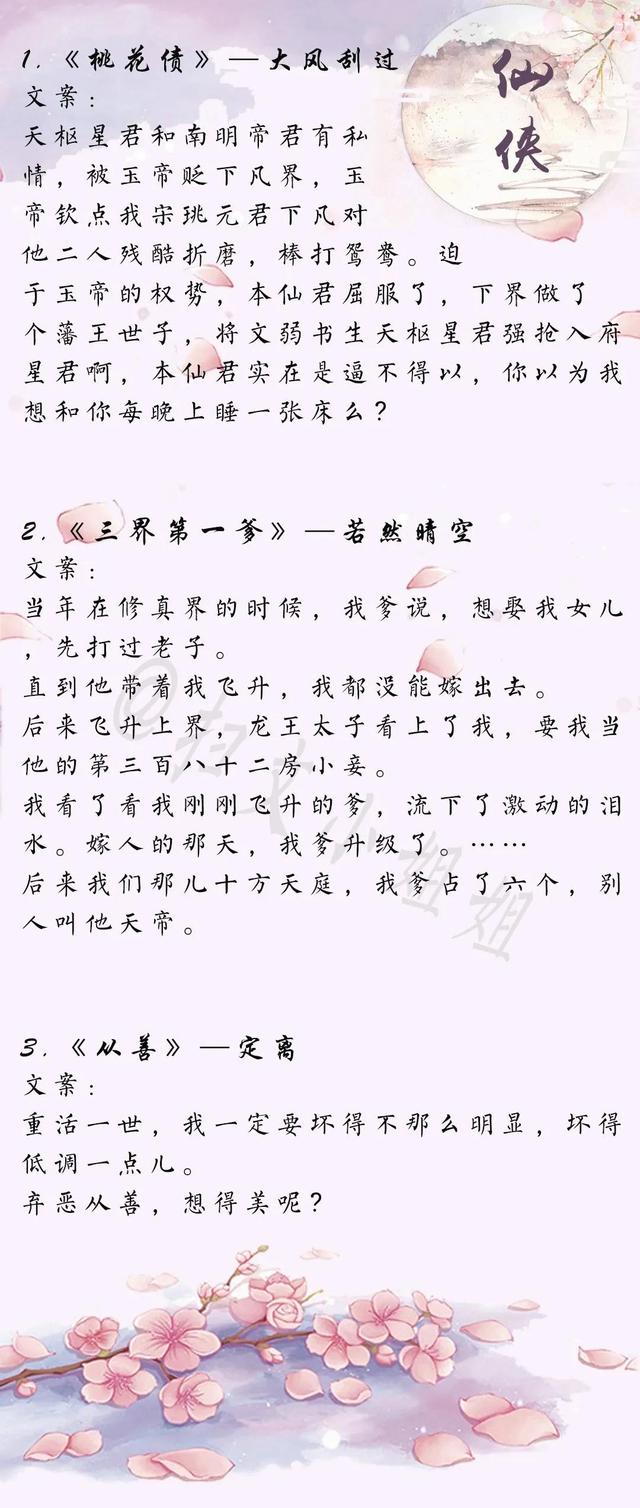 仙侠
1.《桃花债》—大风刮过
文案：
天枢星君和南明帝君有私
情，被玉帝贬下凡界，玉
帝钦点我宋珧元君下凡对
他二人残酷折磨，棒打鸳鸯。迫
于玉帝的权势，本仙君屈服了，下界做了
个藩王世子，将文弱书生天枢星君强抢入府
星君啊，本仙君实在是逼不得以，你以为我
想和你每晚上睡一张床么？
2.《三界第一爹》—若然晴空
文案：
当年在修真界的时候，我爹说，想娶我女儿
，先打过老子。
直到他带着我飞升，我都没能嫁出去。
后来飞升上界，龙王太子看上了我，要我当
他的第三百八十二房小妾。
我看了看我刚刚飞升的爹，流下了激动的泪
水。嫁人的那天，我爹升级了。……
后来我们那儿十方天庭，我爹占了六个，别
人叫他天帝。
@扫文小姐姐
3.《从善》—定离
文案：
重活一世，我一定要坏得不那么明显，坏得
低调一点儿。
弃恶从善，想得美呢？